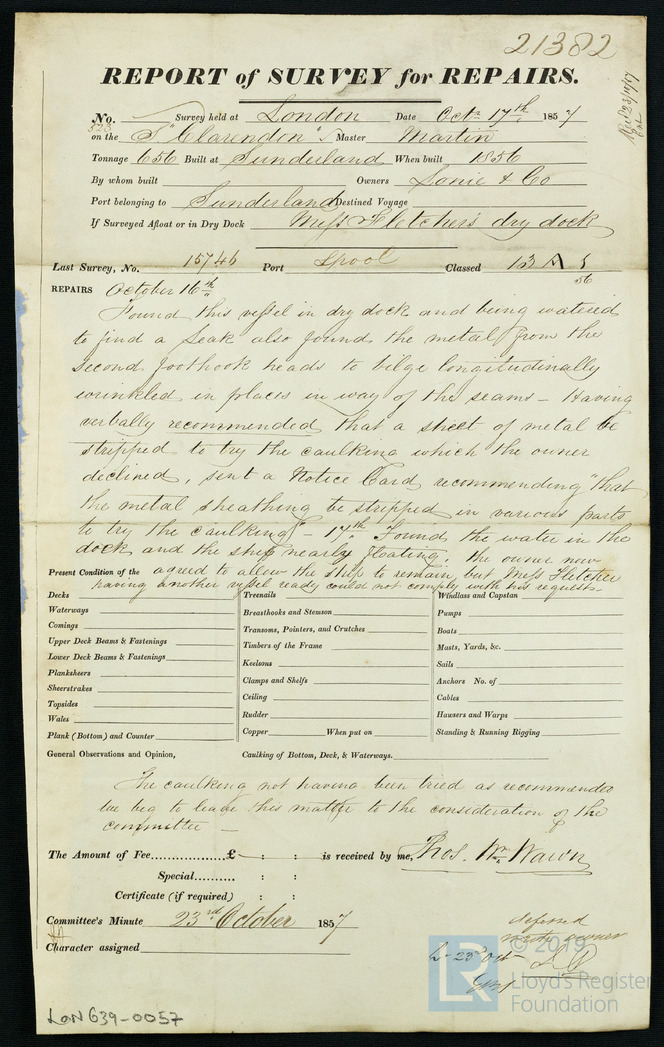 21382
REPORT of SURVEY for REPAIRS.
No. 523 Survey held at London Date Octr 17th 1857
on the S "Clarendon" Master Martin
Tonnage 656 Built at Sunderland When built 1856
By whom built Owners & Co
Port belonging to Sunderland Destined Voyage
If Surveyed Afloat or in Dry Dock Messrs Fletcher's dry dock
Last Survey, No. 15746 Port Lpool Classed 13 A 1
56
REPAIRS October 16th
Found this vessel in dry dock and being watered
to find a Leak also found the metal from the
second foothook heads to bilge longitudinally
wrinkled in places in way of the seams – Having
verbally recommended that a street of metal be
stripped to try the caulking which the owner
declined, sent a Notice Card recommending "that
the metal sheathing be stripped in various parts
to try the caulking" – 17th Found the water in the
dock and the ship nearly floating; the owner now
agreed to allow the ship to remain but Messrs Fletcher
having another vessel ready could not comply with his request
Present Condition of the
Decks
Waterways
Comings
Upper Deck Beams & Fastenings
Lower Deck Beams & Fastenings
Planksheers
Sheerstrakes
Topsides
Wales
Plank (Bottom) and Counter
Treenails
Breasthooks and Stemson
Transoms, Pointers, and Crutches
Timbers of the Frame
Keelsons
Clamps and Shelfs
Ceiling
Rudder
Copper When put on
Windlass and Capstan
Pumps
Boats
Masts, Yards, &c.
Sails
Anchors No. of
Cables
Hawsers and Warps
Standing & Running Rigging
General Observations and Opinion, Caulking of Bottom, Deck, & Waterways.
The caulking not having been tried as recommended
we beg to leave this matter to the consideration of the
committee –
The Amount of Fee..................£ : : is received by me, Thos. Wm. Wawn
Special.......... : :
Certificate (if required) : :
Committee's Minute 23rd October 1857
Character assigned
deferred
owner
23 Oct
© 2019
LR
Lloyd's Register
Foundation
LON639-0057